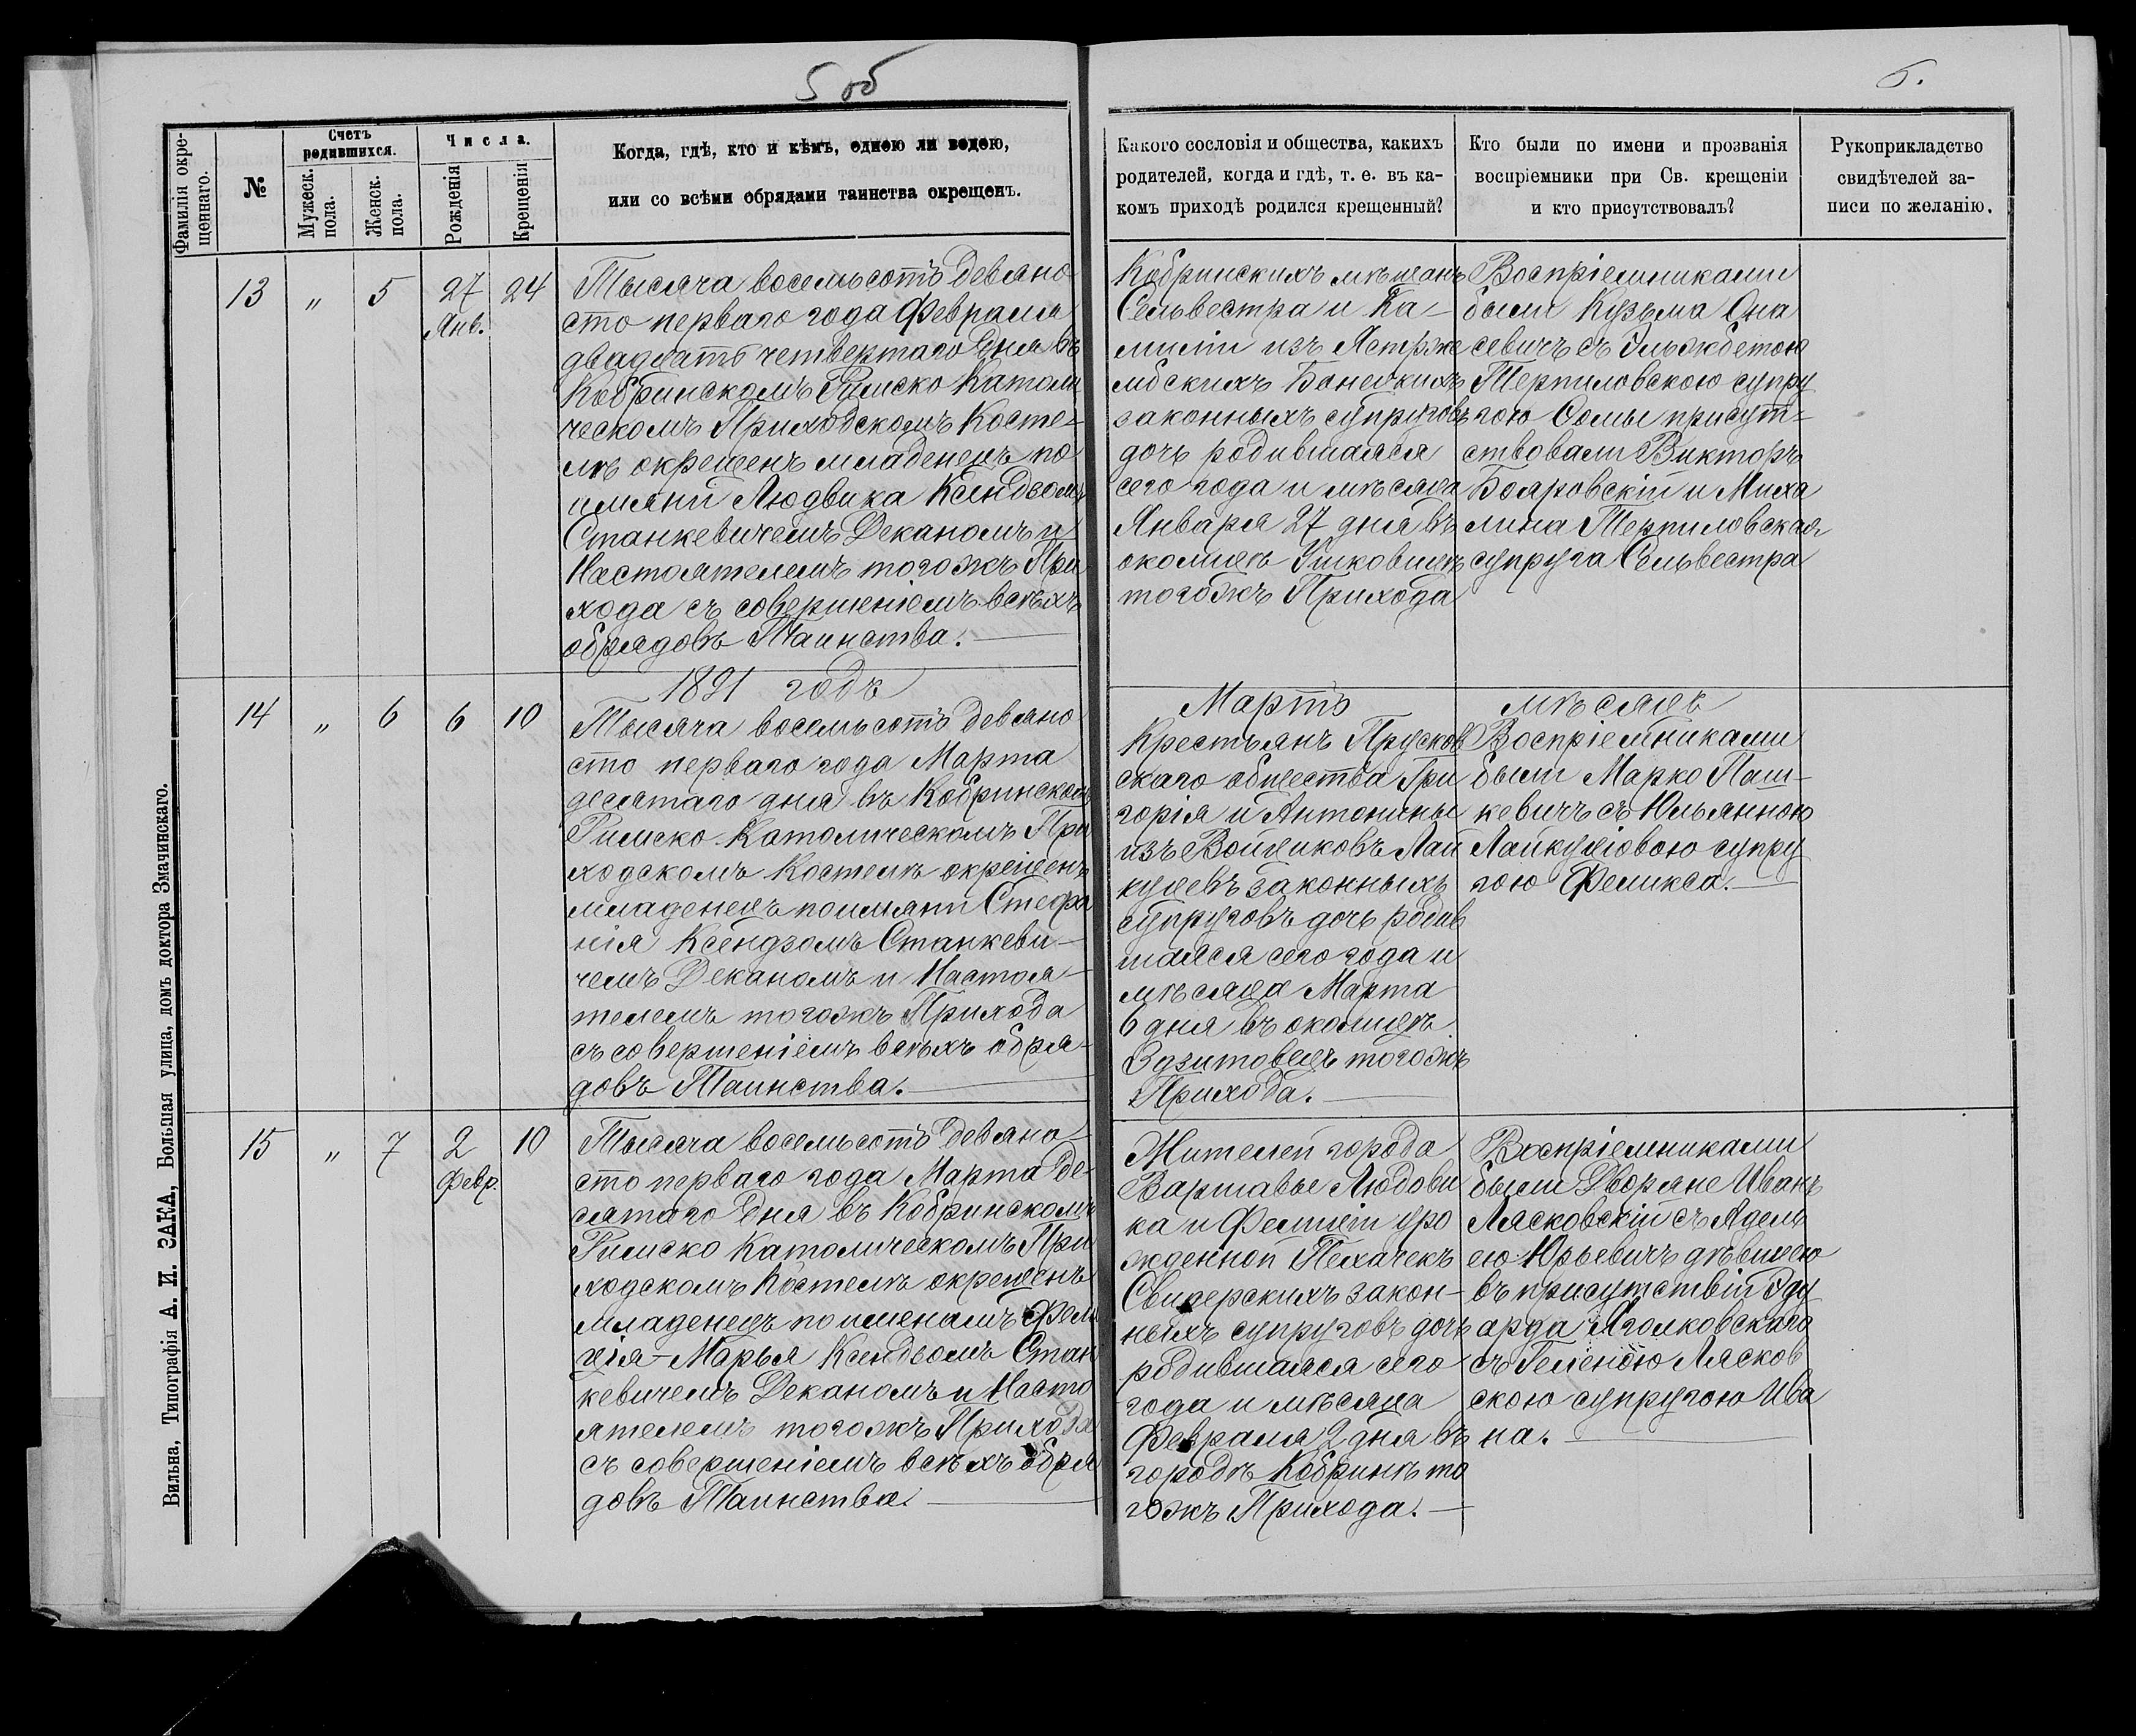 5 об
6.
Фамилія окре-
щеннаго.
№
Счетъ
родившихся.
Мужеск.
пола.
Женск.
пола.
Числа.
Рожденія
Крещенія
Когда, гдѣ, кто и кѣмъ, одною ли водою,
или со всѣми обрядами таинства окрещенъ.
Какого сословія и общества, какихъ
родителей, когда и гдѣ, т. е. въ ка-
комъ приходѣ родился крещенный?
Кто были по имени и прозванія
воспріемники при Св. крещеніи
и кто присутствовалъ?
Рукоприкладство
свидѣтелей за-
писи по желанію.
13 „ 5 27 24
Янв.
Тысяча восемьсотъ девяно
сто перваго года Февраля
двадцать четвертаго дня въ
Кобринскомъ Римско Католи
ческомъ Приходскомъ Косте-
лѣ окрещенъ младенецъ по
имяни Людвика Ксендзомъ
Станкевичемъ Деканомъ и
Настоятелемъ тогожъ При
хода съ совершеніемъ всѣхъ
обрядовъ Таинства.
Кобринскихъ мѣщанъ
Сельвестра и Ка-
миліи изъ Ястрже
мбскихъ Банецкихъ
законныхъ супруговъ
дочь родившаяся
сего года и мѣсяца
Января 27 дня въ
околицѣ
тогожъ Прихода
Воспріемниками
были Кузьма Она
севичъ съ Эльжбетою
Терпиловскою супру
гою Фомы присут-
ствовали Викторъ
Бояровскій и Миха
лина Терпиловская
супруга Сельвестра
1891 годъ
Мартъ мѣсяцъ
14 „ 6 6 10
Тысяча восемьсотъ девяно
сто перваго года Марта
десятаго дня въ Кобринскомъ
Римско-Католическомъ При
ходскомъ Костелѣ окрещенъ
младенецъ по имяни Стефа
нія Ксендзомъ Станкеви-
чемъ Деканомъ и Настоя-
телемъ тогожъ Прихода
съ совершеніемъ всѣхъ обря-
довъ Таинства.
Крестьянъ Прусков
скаго общества Гри
горія и Антонины
изъ Войциковъ Лай
куцевъ законныхъ
супруговъ дочь родив
шаяся сего года и
мѣсяца Марта
6 дня въ околицѣ
Здзитовецъ тогожъ
Прихода.
Воспріемниками
были Марко Паш-
кевичъ съ Юльянною
Лайкуціовою супру
гою Феликса.
15 „ 7 2 10
Февр.
Тысяча восемьсотъ девяно
сто перваго года Марта де-
сятаго дня въ Кобринскомъ
Римско Католическомъ При
ходскомъ Костелѣ окрещенъ
младенецъ по именамъ Фели
ція-Марья Ксендзомъ Стан
кевичемъ Деканомъ и Насто
ятелемъ тогожъ Прихода
съ совершеніемъ всѣхъ обря
довъ Таинства.
Жителей города
Варшавы Людови
ка и Фелиціи уро
жденной Пехачекъ
Свидерскихъ закон-
ныхъ супруговъ дочь
родившаяся сего
года и мѣсяца
Февраля 2 дня въ
городѣ Кобринѣ то
гожъ Прихода.
Воспріемниками
были Дворяне Иванъ
Лясковскій съ Адель
ею Юрьевичъ дѣвицею
въ присутствіи Эду
арда Яголковскаго
съ Геленою Лясков
скою супругою Ива
на.
Вильна, Типографія А. И. ЗАКА, Большая улица, домъ доктора Змачинскаго.